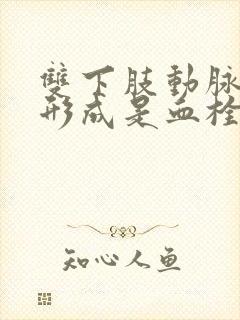 雙下肢動脈
形成是血栓
知心人鱼